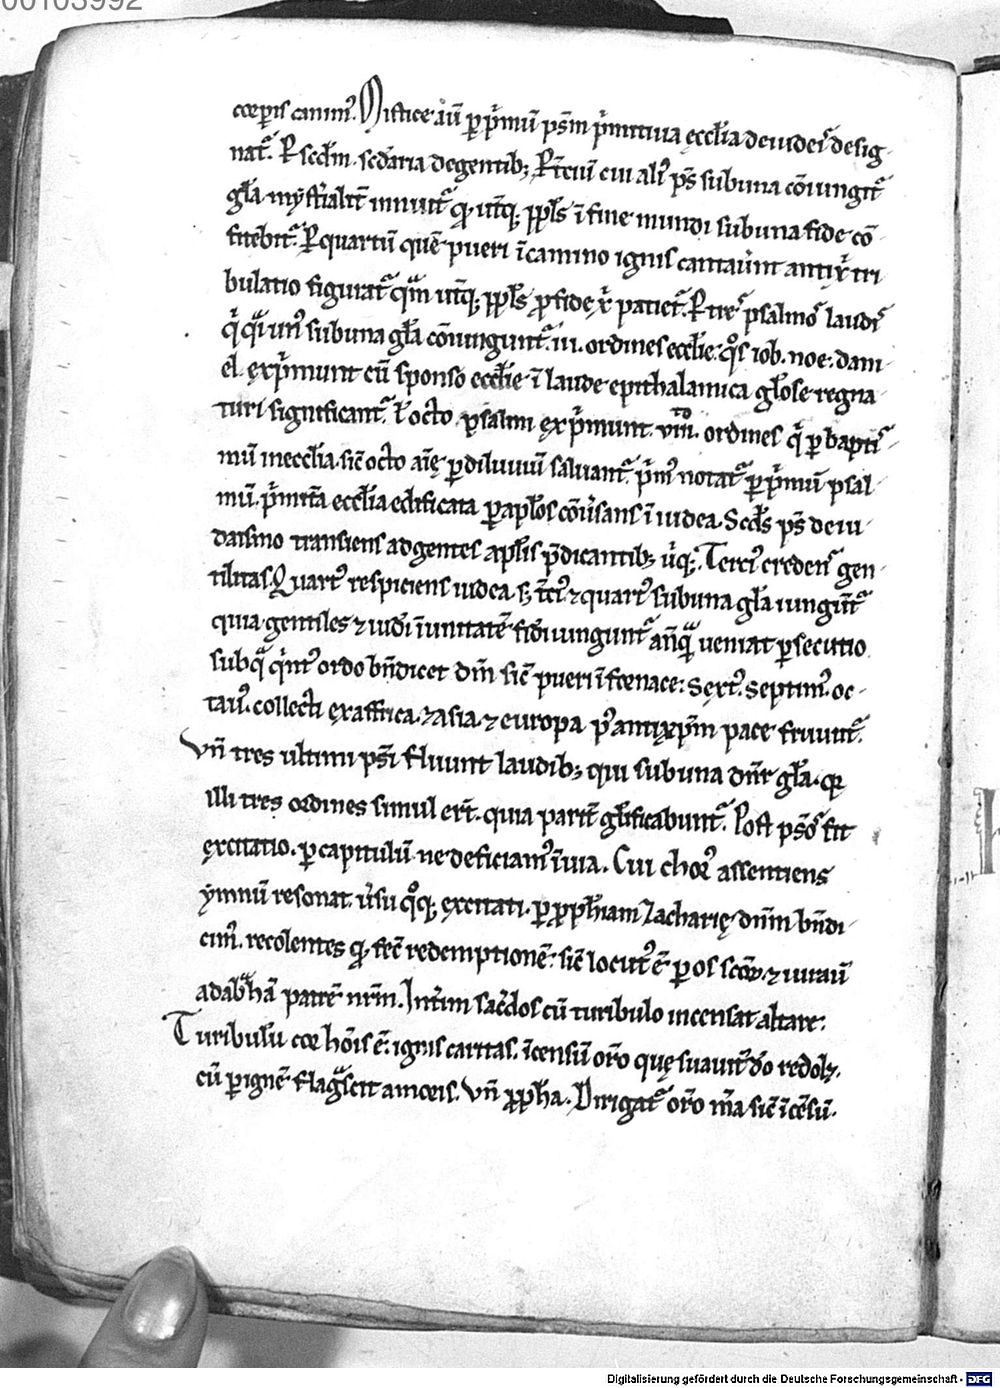 00103992
cœp̄is canim᷒. Mistice aū ꝑ p̄mū ps̄m p̄mitiua ęcclīa de iudeis desig
nat᷒. P scđm. scđaria de gentib; P t̄ciū cui ali᷒ ps̄ sub una cōiungit᷒
gl̄a mystialit̄ innuit᷒ qđ ut̄q; ppl̄s ī fine mundi sub una fide cō
fitebit᷒. P quartū quē pueri ī camino ignis cantauer̄nt antix̄i tri
bulatio figurat᷒ quā ut̄q; ppl̄s ꝓ fide x̄i patiet᷒. P tres psalmos laudis
q̄ quasi un᷒ sub una gl̄a cōiungunt᷒. iii. ordines ęcclīe. qͦs iob. noe. dani
el exp̄munt cū sponso ęcclīe ī laude epithalamica gl̄ose regna
turi significant᷒. Vͥ octo psalmi exp̄munt. viii. ordines q̄ ꝑ bapti
mū in ecclīa. sic̄ octo aīę ꝑ diluuiū saluant᷒. p̄m᷒ notat᷒ ꝑ p̄mū psal
mū. p̄mit̄a ecclīa edificata ꝑ aplōs cōuersans ī iudea. Scđs ps̄ de iu
daismo transiens ad gentes aplīs p̄dicantib; ut̄q;. Terci᷒ credens gen
tilitas. Quart᷒ respiciens iudea. s; t̄ci᷒ ⁊ quart᷒ sub una gl̄a iungūt᷒
quia gentiles ⁊ iudei ī unitatē fidei iungunt᷒ anq̄ ueniat ꝑsecutio
sub q̄ qͥnt᷒ ordo bn̄dicet dn̄m sic̄ pueri ī fornace: Sext᷒. septim᷒. oc
tau᷒. collecti ex affrica. ⁊ asia. ⁊ europa p᷒ antixp̄m pace fruunt᷒.
Vn̄ tres ultimi ps̄i fluunt laudib; qui sub una dn̄r gl̄a. qꝛ
illi tres ordines simul er̄t. quia parit̄ gl̄ificabunt᷒. Post ps̄os fit
excitatio. ꝑ capitulū ne deficiam᷒ ī uia. Cui chor᷒ assentiens
ymnū resonat u̇su qͦq; excitati. ꝑ ꝓph̄iam Zacharię dn̄m bn̄di
cim᷒. recolentes qđ fec̄ redemptionē. sic̄ locut᷒ ē ꝑ os scōꝝ ⁊ iurauit
ad abͣhā patrē nr̄m. Int̄im sac̄dos cū turibulo incensat altare.
Turibulū cor hōis ē. ignis caritas. īcensū or̄o quę suauit̄ do redolꝫ.
cū ꝑ ignē flagrescit amoris. Vn̄ ꝓph̄a. Dirigat᷒ or̄o m̄a sic̄ īcēsū.
Digitalisierung gefördert durch die Deutsche Forschungsgemeinschaft - DFG